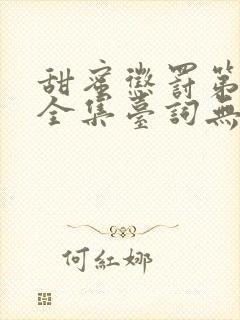 甜蜜懲罰第
全集臺詞無
何紅娜